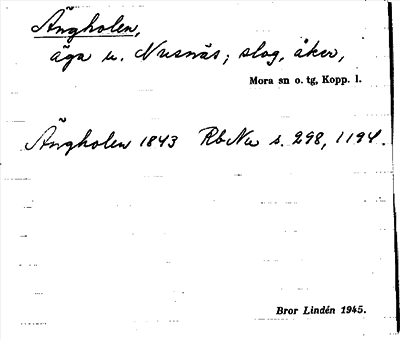 Ängholen,
äga u. Nusnäs; slog, åker,
Mora sn o. tg, Kopp. l.
Ängholen 1843 RbNu s. 298, 1194.
Bror Lindén 1945.